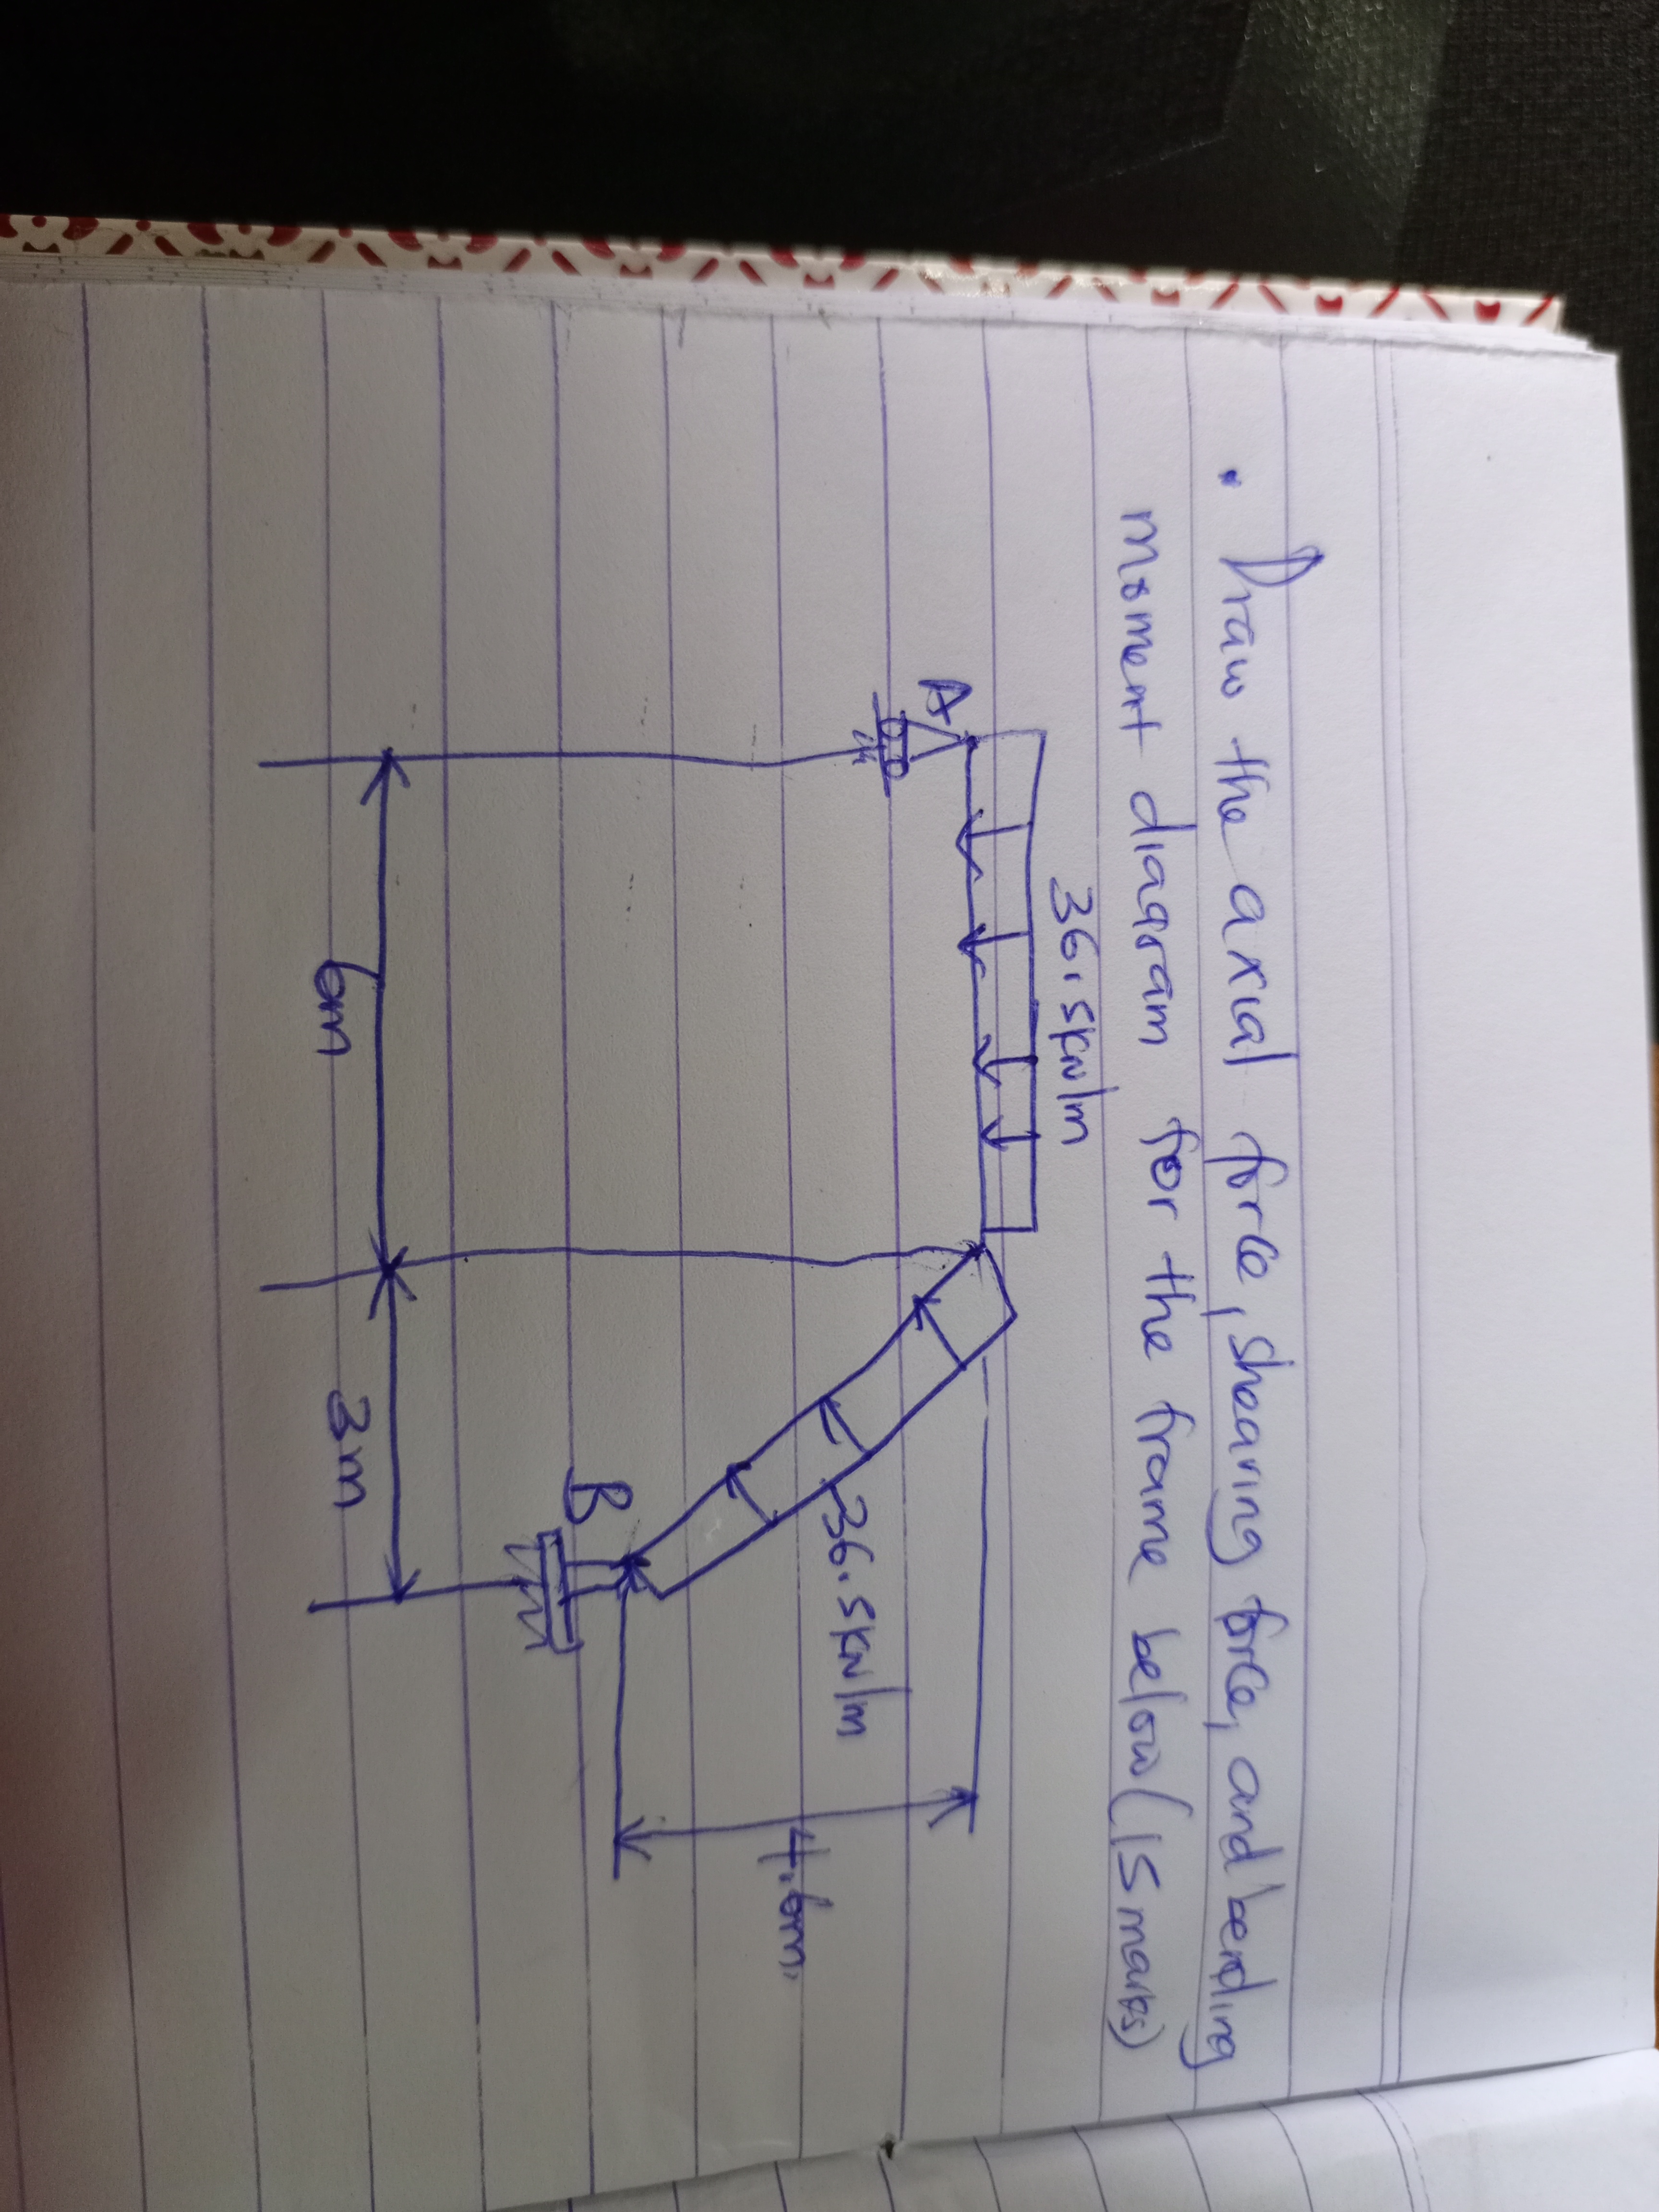 • Draw the axial force, shearing force, and bending
moment diagram for the frame below (15 marks)
36.5kN/m
A
36.5kN/m
4.6m
B
6m
3m